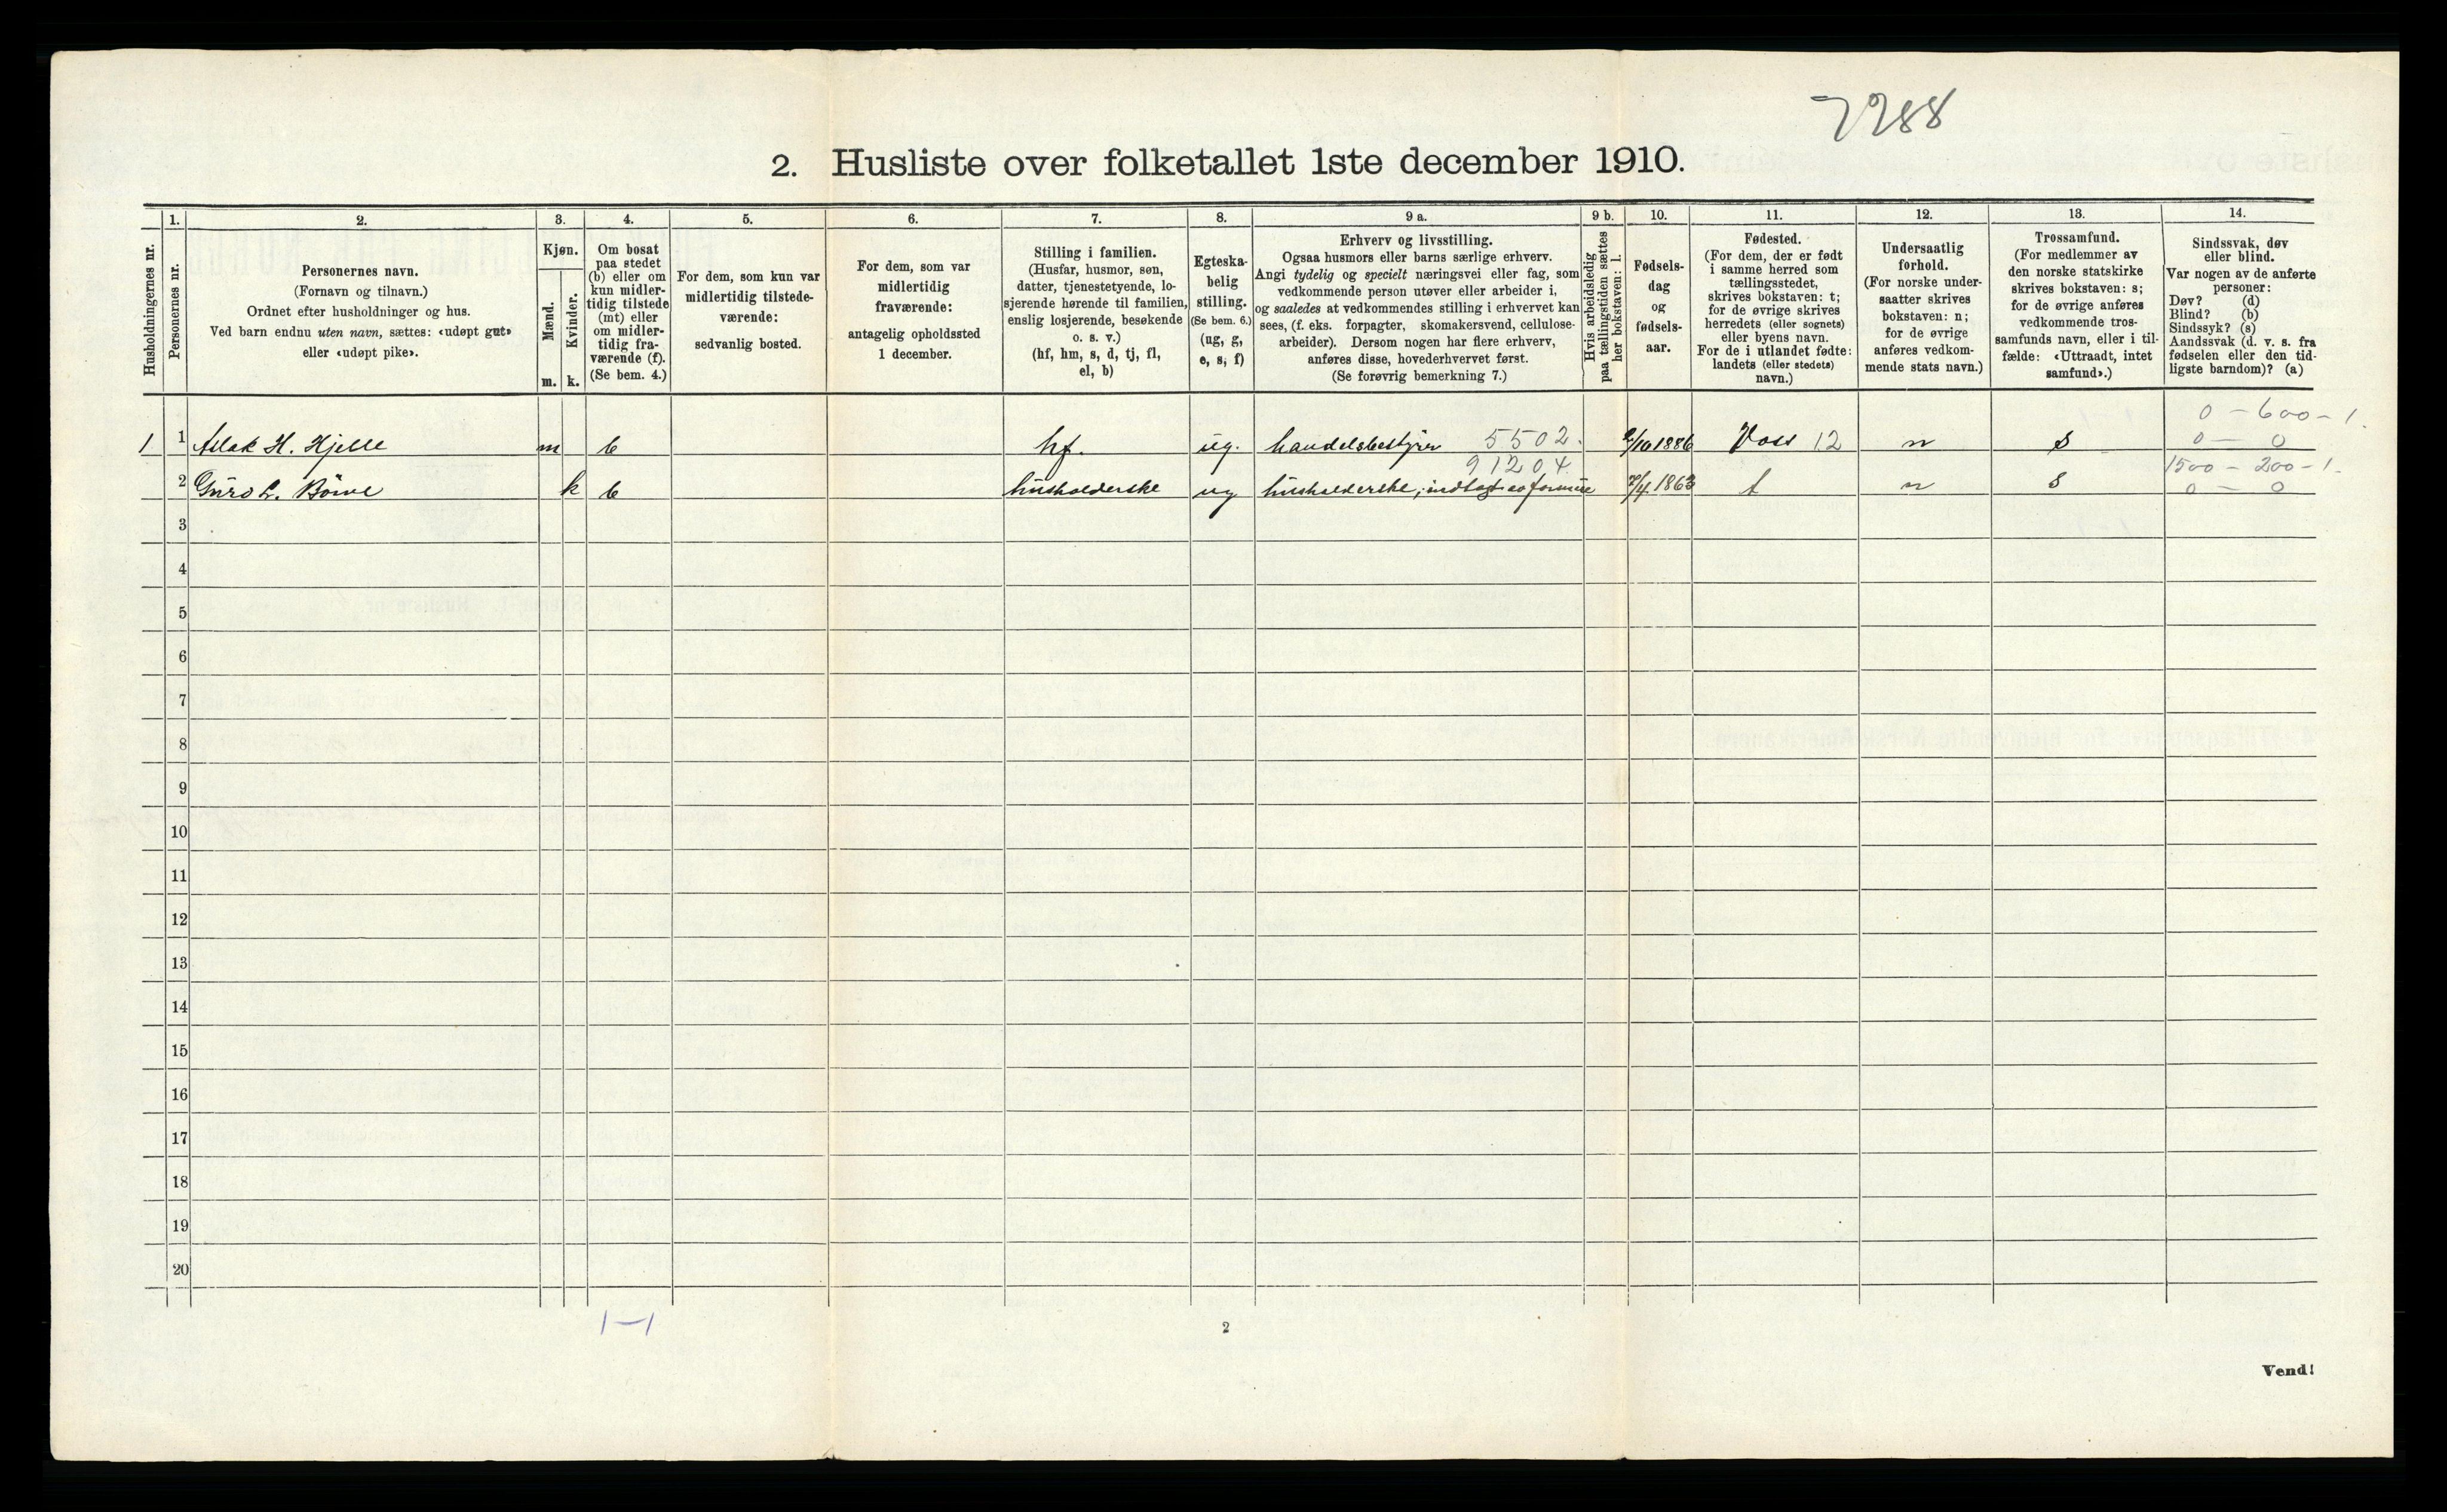 7288
2. Husliste over folketallet 1ste december 1910.
Husholdningernes nr.
1.
Personernes nr.
2.
Personernes navn.
(Fornavn og tilnavn.)
Ordnet efter husholdninger og hus.
Ved barn endnu uten navn, sættes: «udøpt gut»
eller «udøpt pike».
3.
Kjøn.
Mænd.
Kvinder.
m. k.
4.
Om bosat
paa stedet
(b) eller om
kun midler-
tidig tilstede
(mt) eller
om midler-
tidig fra-
værende (f).
(Se bem. 4.)
5.
For dem, som kun var
midlertidig tilstede-
værende:
sedvanlig bosted.
6.
For dem, som var
midlertidig
fraværende:
antagelig opholdssted
1 december.
7.
Stilling i familien.
(Husfar, husmor, søn,
datter, tjenestetyende, lo-
sjerende hørende til familien,
enslig losjerende, besøkende
o. s. v.)
(hf, hm, s, d, tj, fl,
el, b)
8.
Egteska-
belig
stilling.
(Se bem. 6.)
(ug, g,
e, s, f)
9 a.
Erhverv og livsstilling.
Ogsaa husmors eller barns særlige erhverv.
Angi tydelig og specielt næringsvei eller fag, som
vedkommende person utøver eller arbeider i,
og saaledes at vedkommendes stilling i erhvervet kan
sees, (f. eks. forpagter, skomakersvend, cellulose-
arbeider). Dersom nogen har flere erhverv,
anføres disse, hovederhvervet først.
(Se forøvrig bemerkning 7.)
9 b.
Hvis arbeidsledig
paa tællingstiden sættes
her bokstaven: l.
10.
Fødsels-
dag
og
fødsels-
aar.
11.
Fødested.
(For dem, der er født
i samme herred som
tællingsstedet,
skrives bokstaven: t;
for de øvrige skrives
herredets (eller sognets)
eller byens navn.
For de i utlandet fødte:
landets (eller stedets)
navn.)
12.
Undersaatlig
forhold.
(For norske under-
saatter skrives
bokstaven: n;
for de øvrige
anføres vedkom-
mende stats navn.)
13.
Trossamfund.
(For medlemmer av
den norske statskirke
skrives bokstaven: s;
for de øvrige anføres
vedkommende tros-
samfunds navn, eller i til-
fælde: «Uttraadt, intet
samfund».)
14.
Sindssvak, døv
eller blind.
Var nogen av de anførte
personer:
Døv? (d)
Blind? (b)
Sindssyk? (s)
Aandssvak (d. v. s. fra
fødselen eller den tid-
ligste barndom)? (a)
0 – 600 – 1.
1 1 Aslak H. Hjelle m b hf. ug. handelsbestyrer 5502. /10 1886 Voss 12 n s 0 – 0
91204. 1500 – 200 – 1.
2 Guro L. k b husholderske ug husholderske, indtægt av formue /4 1863 t n s 0 – 0
3
4
5
6
7
8
9
10
11
12
13
14
15
16
17
18
19
20
1–1
2
Vend!